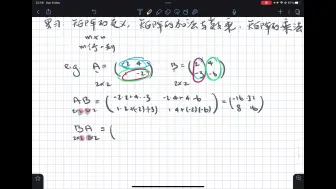 复习：矩阵的定义，矩阵的加法与数乘，矩阵的乘法
m×n
m行n列
e.g A = ( -2 4 ; 1 -2 ) B = ( 2 4 ; -3 -6 )
2×2 2×2
AB = ( -2·2+4·-3 -2·4+4·-6 ; 1·2+(-2)(-3) 1·4+(-2)(-6) ) = ( -16 -32 ; 8 16 )
2×2 2×2
BA = (
2×2 2×2